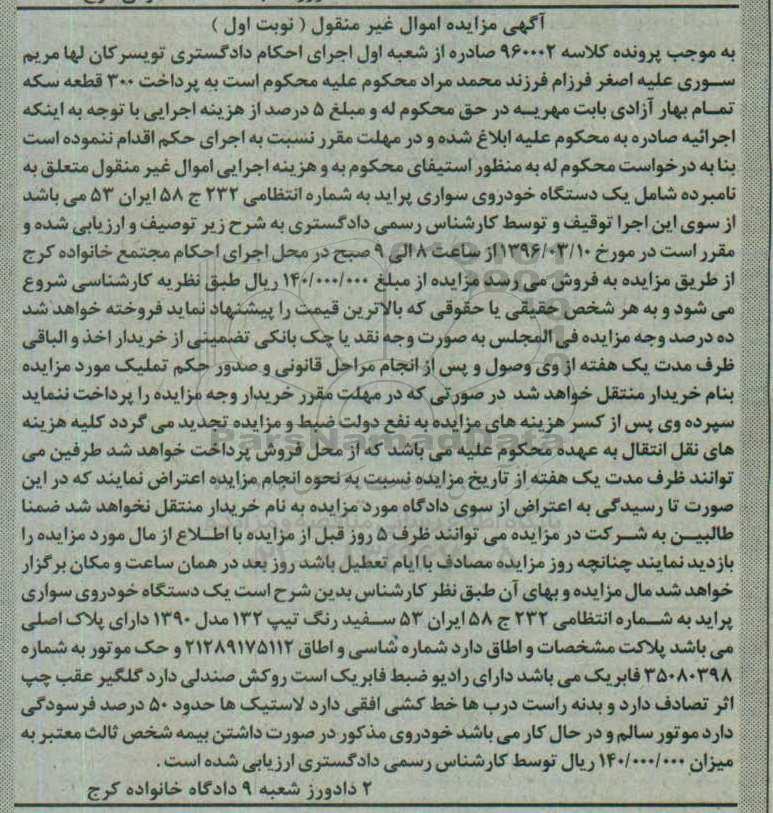 آگهی مزایده اموال غیر منقول ( نوبت اول )
به موجب پرونده کلاسه ۹۶۰۰۰۲ صادره از شعبه اول اجرای احکام دادگستری تویسرکان لها مریم
سوری علیه اصغر فرزام فرزند محمد مراد محکوم علیه محکوم است به پرداخت ۳۰۰ قطعه سکه
تمام بهار آزادی بابت مهریه در حق محکوم له و مبلغ ۵ درصد از هزینه اجرایی با توجه به اینکه
اجرائیه صادره به محکوم علیه ابلاغ شده و در مهلت مقرر نسبت به اجرای حکم اقدام ننموده است
بنا به درخواست محکوم له به منظور استیفای محکوم به و هزینه اجرایی اموال غیر منقول متعلق به
نامبرده شامل یک دستگاه خودروی سواری پراید به شماره انتظامی ۲۳۲ ج ۵۸ ایران ۵۳ می باشد
از سوی این اجرا توقیف و توسط کارشناس رسمی دادگستری به شرح زیر توصیف و ارزیابی شده و
مقرر است در مورخ ۱۳۹۶/۰۳/۱۰ از ساعت ۸ الی ۹ صبح در محل اجرای احکام مجتمع خانواده کرج
از طریق مزایده به فروش می رسد مزایده از مبلغ ۱۴۰/۰۰۰/۰۰۰ ریال طبق نظریه کارشناسی شروع
می شود و به هر شخص حقیقی یا حقوقی که بالاترین قیمت را پیشنهاد نماید فروخته خواهد شد
ده درصد وجه مزایده فی المجلس به صورت وجه نقد یا چک بانکی تضمینی از خریدار اخذ و الباقی
ظرف مدت یک هفته از وی وصول و پس از انجام مراحل قانونی و صدور حکم تملیک مورد مزایده
بنام خریدار منتقل خواهد شد در صورتی که در مهلت مقرر خریدار وجه مزایده را پرداخت ننماید
سپرده وی پس از کسر هزینه های مزایده به نفع دولت ضبط و مزایده تجدید می گردد کلیه هزینه
های نقل انتقال به عهده محکوم علیه می باشد که از محل فروش پرداخت خواهد شد طرفین می
توانند ظرف مدت یک هفته از تاریخ مزایده نسبت به نحوه انجام مزایده اعتراض نمایند که در این
صورت تا رسیدگی به اعتراض از سوی دادگاه مورد مزایده به نام خریدار منتقل نخواهد شد ضمنا
طالبین به شرکت در مزایده می توانند ظرف ۵ روز قبل از مزایده با اطلاع از مال مورد مزایده را
بازدید نمایند چنانچه روز مزایده مصادف با ایام تعطیل باشد روز بعد در همان ساعت و مکان برگزار
خواهد شد مال مزایده و بهای آن طبق نظر کارشناس بدین شرح است یک دستگاه خودروی سواری
پراید به شماره انتظامی ۲۳۲ ج ۵۸ ایران ۵۳ سفید رنگ تیپ ۱۳۲ مدل ۱۳۹۰ دارای پلاک اصلی
می باشد پلاکت مشخصات و اطاق دارد شماره شاسی و اطاق ۲۱۲۸۹۱۷۵۱۱۲ و حک موتور به شماره
۳۵۰۸۰۳۹۸ فابریک می باشد دارای رادیو ضبط فابریک است روکش صندلی دارد گلگیر عقب چپ
اثر تصادف دارد و بدنه راست درب ها خط کشی افقی دارد لاستیک ها حدود ۵۰ درصد فرسودگی
دارد موتور سالم و در حال کار می باشد خودروی مذکور در صورت داشتن بیمه شخص ثالث معتبر به
میزان ۱۴۰/۰۰۰/۰۰۰ ریال توسط کارشناس رسمی دادگستری ارزیابی شده است .
۲ دادورز شعبه ۹ دادگاه خانواده کرج
ParsNamadData